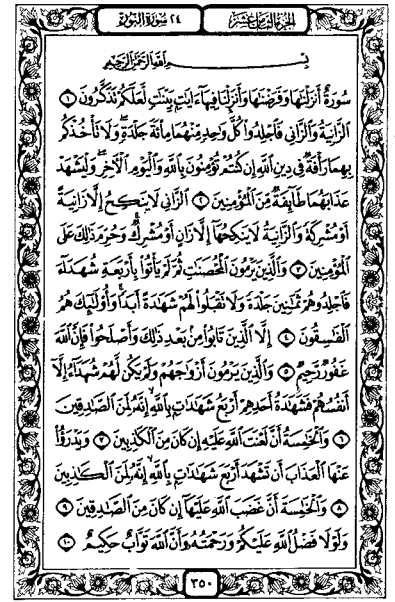 الجزء الثامن عشر
٢٤ سورة النور
بِسْمِ ٱللَّهِ ٱلرَّحْمَٰنِ ٱلرَّحِيمِ
سُورَةٌ أَنزَلْنَٰهَا وَفَرَضْنَٰهَا وَأَنزَلْنَا فِيهَآ ءَايَٰتٍۭ بَيِّنَٰتٍ لَّعَلَّكُمْ تَذَكَّرُونَ ١
ٱلزَّانِيَةُ وَٱلزَّانِى فَٱجْلِدُوا۟ كُلَّ وَٰحِدٍ مِّنْهُمَا مِا۟ئَةَ جَلْدَةٍ ۖ وَلَا تَأْخُذْكُم
بِهِمَا رَأْفَةٌ فِى دِينِ ٱللَّهِ إِن كُنتُمْ تُؤْمِنُونَ بِٱللَّهِ وَٱلْيَوْمِ ٱلْءَاخِرِ ۖ وَلْيَشْهَدْ
عَذَابَهُمَا طَآئِفَةٌ مِّنَ ٱلْمُؤْمِنِينَ ٢ ٱلزَّانِى لَا يَنكِحُ إِلَّا زَانِيَةً
أَوْ مُشْرِكَةً وَٱلزَّانِيَةُ لَا يَنكِحُهَآ إِلَّا زَانٍ أَوْ مُشْرِكٌ ۚ وَحُرِّمَ ذَٰلِكَ عَلَى
ٱلْمُؤْمِنِينَ ٣ وَٱلَّذِينَ يَرْمُونَ ٱلْمُحْصَنَٰتِ ثُمَّ لَمْ يَأْتُوا۟ بِأَرْبَعَةِ شُهَدَآءَ
فَٱجْلِدُوهُمْ ثَمَٰنِينَ جَلْدَةً وَلَا تَقْبَلُوا۟ لَهُمْ شَهَٰدَةً أَبَدًا ۚ وَأُو۟لَٰٓئِكَ هُمُ
ٱلْفَٰسِقُونَ ٤ إِلَّا ٱلَّذِينَ تَابُوا۟ مِنۢ بَعْدِ ذَٰلِكَ وَأَصْلَحُوا۟ فَإِنَّ ٱللَّهَ
غَفُورٌ رَّحِيمٌ ٥ وَٱلَّذِينَ يَرْمُونَ أَزْوَٰجَهُمْ وَلَمْ يَكُن لَّهُمْ شُهَدَآءُ إِلَّآ
أَنفُسُهُمْ فَشَهَٰدَةُ أَحَدِهِمْ أَرْبَعُ شَهَٰدَٰتٍۭ بِٱللَّهِ ۙ إِنَّهُۥ لَمِنَ ٱلصَّٰدِقِينَ
٦ وَٱلْخَٰمِسَةُ أَنَّ لَعْنَتَ ٱللَّهِ عَلَيْهِ إِن كَانَ مِنَ ٱلْكَٰذِبِينَ ٧ وَيَدْرَؤُا۟
عَنْهَا ٱلْعَذَابَ أَن تَشْهَدَ أَرْبَعَ شَهَٰدَٰتٍۭ بِٱللَّهِ ۙ إِنَّهُۥ لَمِنَ ٱلْكَٰذِبِينَ
٨ وَٱلْخَٰمِسَةَ أَنَّ غَضَبَ ٱللَّهِ عَلَيْهَآ إِن كَانَ مِنَ ٱلصَّٰدِقِينَ ٩
وَلَوْلَا فَضْلُ ٱللَّهِ عَلَيْكُمْ وَرَحْمَتُهُۥ وَأَنَّ ٱللَّهَ تَوَّابٌ حَكِيمٌ ١٠
٣٥٠